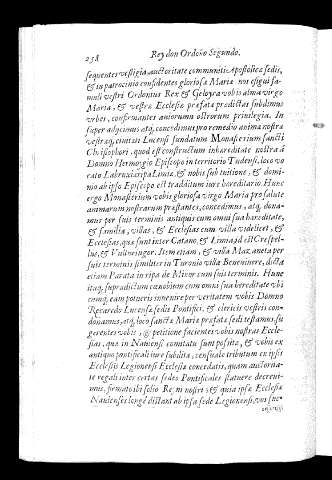 258 Rey don Ordoño Segundo.
sequentes vestigia, auctoritate communiti Apostolicæ sedis,
& in patrocinio confidentes gloriosæ Mariæ nos exigui fa-
muli vestri Ordonius Rex & Geloyra vobis almæ virgo
Maria, & vestræ Ecclesiæ præfatæ prædictas subdimus
vrbes, confirmantes auiorum nostrorum priuilegia. In
super adycimus atq; concedimus pro remedio animæ nostræ
vestræq; ciuitati Lucensi fundatum Monasterium sancti
Christophori, quod est constructum in hæreditate nostra à
Domno Hermogio Episcopo in territorio Tudensi, loco vo
cato Labrugia ripa Limia, & nobis sub tuitione, & domi-
nio ab ipso Episcopo est traditum iure hereditario. Hunc
ergo Monasterium vobis gloriosa virgo Maria pro salute
animarum nostrarum præstantes, concedimus, atq; dona-
mus per suis terminis antiquis cum omni sua hæreditate,
& familia, villas, & Ecclesias cum villa videlicet, &
Ecclesias, quæ sunt inter Catam, & Limia, id est Crespel-
los, & Vulturingor. Item etiam, & villa Mauaneta per
suis terminis similiter in Turonio villa Beouinere, dicta
etiam Parata in ripa de Minor cum suis terminis. Hunc
itaq; supradictum cœnobium cum omni sua hereditate vbi
cumq; eam potueris inuenire per veritatem vobis Domno
Recaredo Lucensis sedis Pontifici, & clericis vestris con-
donamus, atq; loco sanctæ Mariæ præfatæ sedi testamus, su
gerentes vobis, & petitione facientes vobis nostras Eccle-
sias, quæ in Nauiensi comitatu sunt posita, & vobis ex
antiquo pontificali iure subdita, censuale tributum ex ipsis
Ecclesijs Legionensi Ecclesiæ concedatis, quam auctorita-
te regali inter certas sedes Pontificales statuere decreui-
mus, firmato ibi solio Regni nostri: & quia ipsæ Ecclesiæ
Nauienses longè distant ab ipsa sede Legionensi, vos suc-